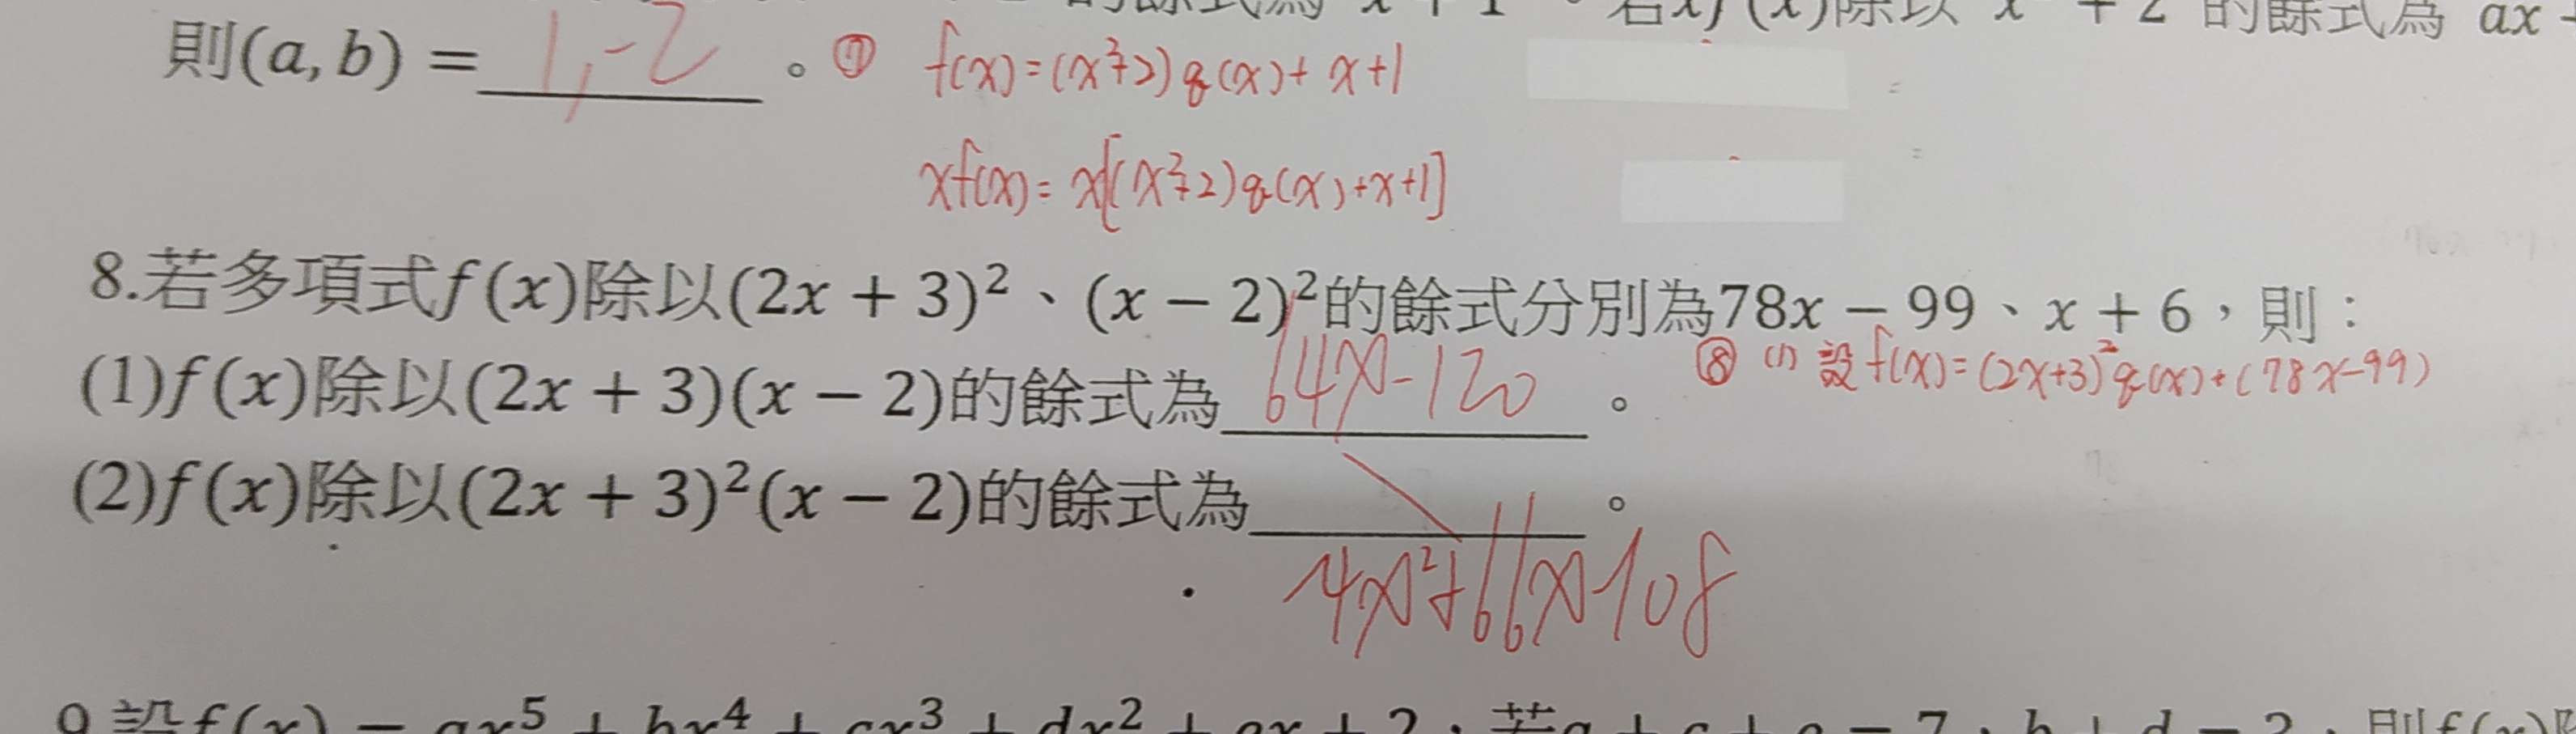 的餘式為 x + 1 。若xf(x)除以 x² + 2 的餘式為 ax
則(a, b) = 1,-2 。⑦ f(x)=(x²+2)q(x)+x+1
xf(x)=x[(x²+2)q(x)+x+1]
8.若多項式f(x)除以(2x + 3)²、(x − 2)²的餘式分別為78x − 99、x + 6，則：
(1)f(x)除以(2x + 3)(x − 2)的餘式為 64x-120 。 ⑧ (1) 設 f(x)=(2x+3)²q(x)+(78x-99)
(2)f(x)除以(2x + 3)²(x − 2)的餘式為 。
-4x²+66x-108
9.設f(x) = ax⁵ + bx⁴ + cx³ + dx² + ex + 2，若a + c + e = 7，b + d = 2，則f(x)除